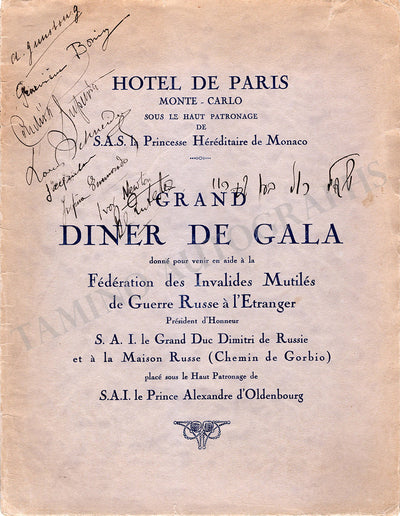 Conchita Supervia
Louis Schneider
Ivor Newton
HOTEL DE PARIS
MONTE - CARLO
SOUS LE HAUT PATRONAGE
DE
S.A.S. la Princesse Héréditaire de Monaco
GRAND
DINER DE GALA
donné pour venir en aide à la
Fédération des Invalides Mutilés
de Guerre Russe à l'Etranger
Président d'Honneur
S. A. I. le Grand Duc Dimitri de Russie
et à la Maison Russe (Chemin de Gorbio)
placé sous le Haut Patronage de
S.A.I. le Prince Alexandre d'Oldenbourg
TAMINO AUTOGRAPHS